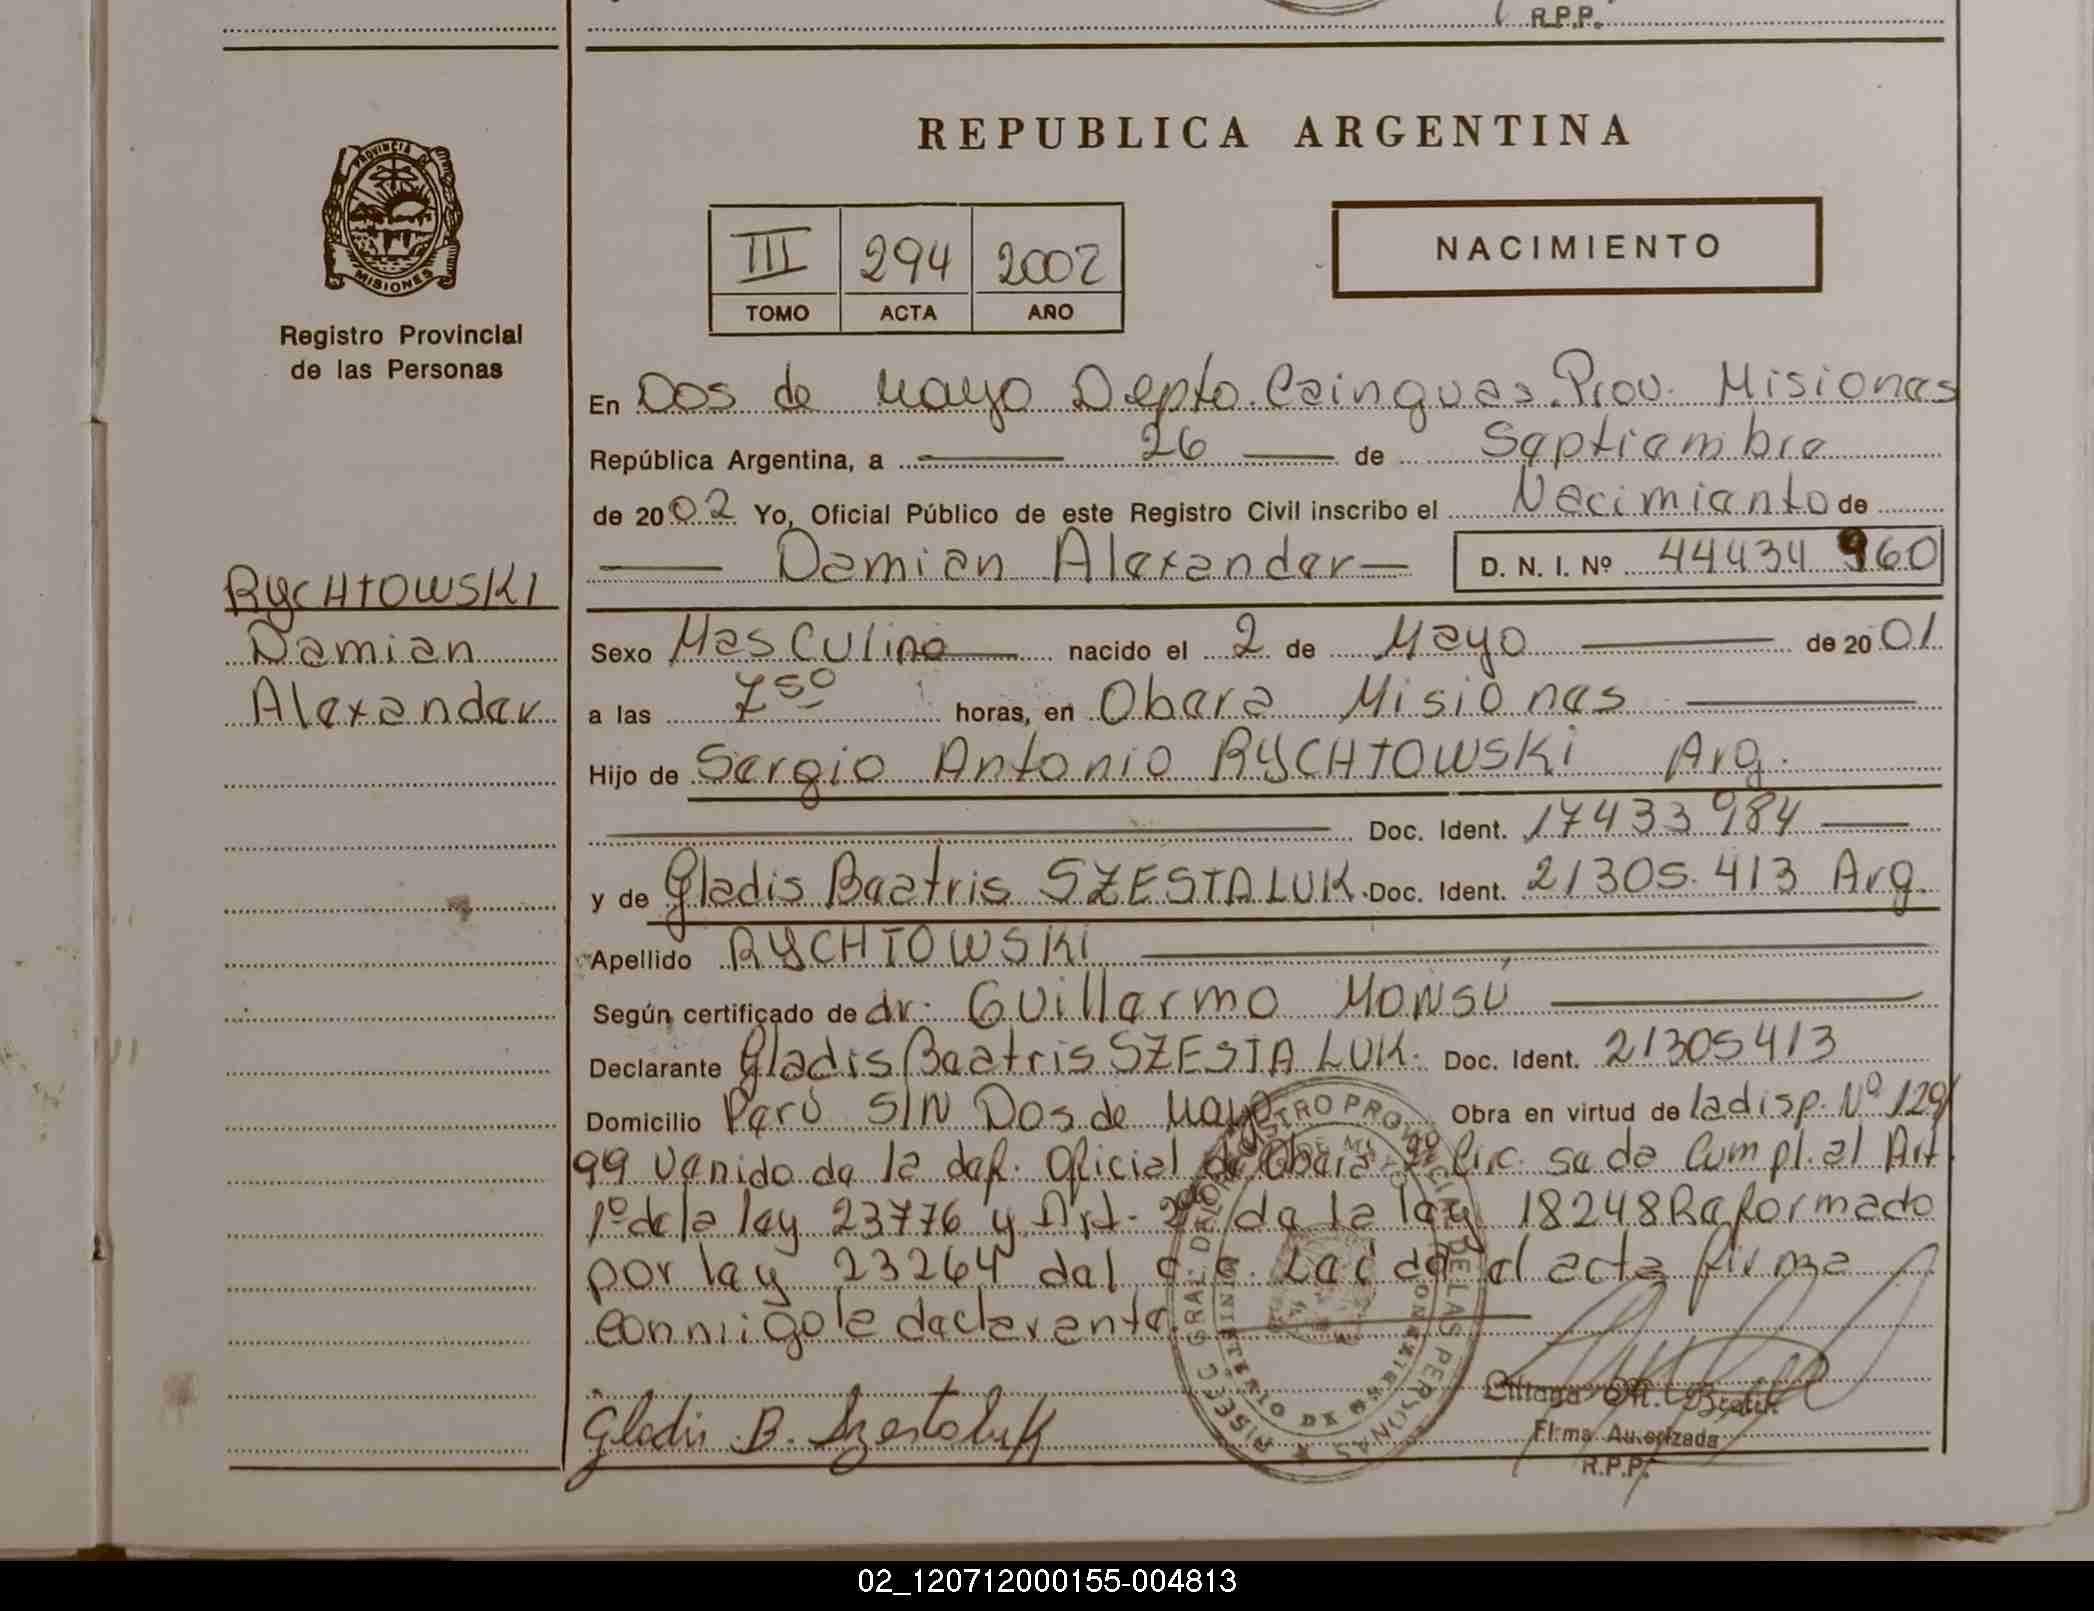 R.P.P.
REPUBLICA ARGENTINA
PROVINCIA DE
MISIONES
Registro Provincial
de las Personas
III 294 2002
TOMO ACTA AÑO
NACIMIENTO
En Dos de Mayo Depto. Cainguas. Prov. Misiones
República Argentina, a 26 de Septiembre
de 2002 Yo, Oficial Público de este Registro Civil inscribo el Nacimiento de
Damian Alexander D. N. I. Nº 44434960
RYCHTOWSKI
Damian
Alexander
Sexo Masculino nacido el 2 de Mayo de 2001
a las 7 50 horas, en Obera Misiones
Hijo de Sergio Antonio RYCHTOWSKI Arg.
Doc. Ident. 17433984
y de Gladis Beatris SZESTALUK. Doc. Ident. 21305.413 Arg.
Apellido RYCHTOWSKI
Según certificado de dr. Guillermo MONSÚ
Declarante Gladis Beatris SZESTALUK. Doc. Ident. 21305413
Domicilio Perú S/N Dos de Mayo Obra en virtud de la disp. Nº 129/
99 Venido de la def. Oficial de Obera Circ. se da Cumpl. al Art
1º de la ley 23776 y Art. de la ley 18248 Reformado
por ley 23264 del Leida el acta firma
conmigo la declarante
Gladis B. Szestaluk
Liliana M.
Firma Autorizada
R.P.P.
02_120712000155-004813